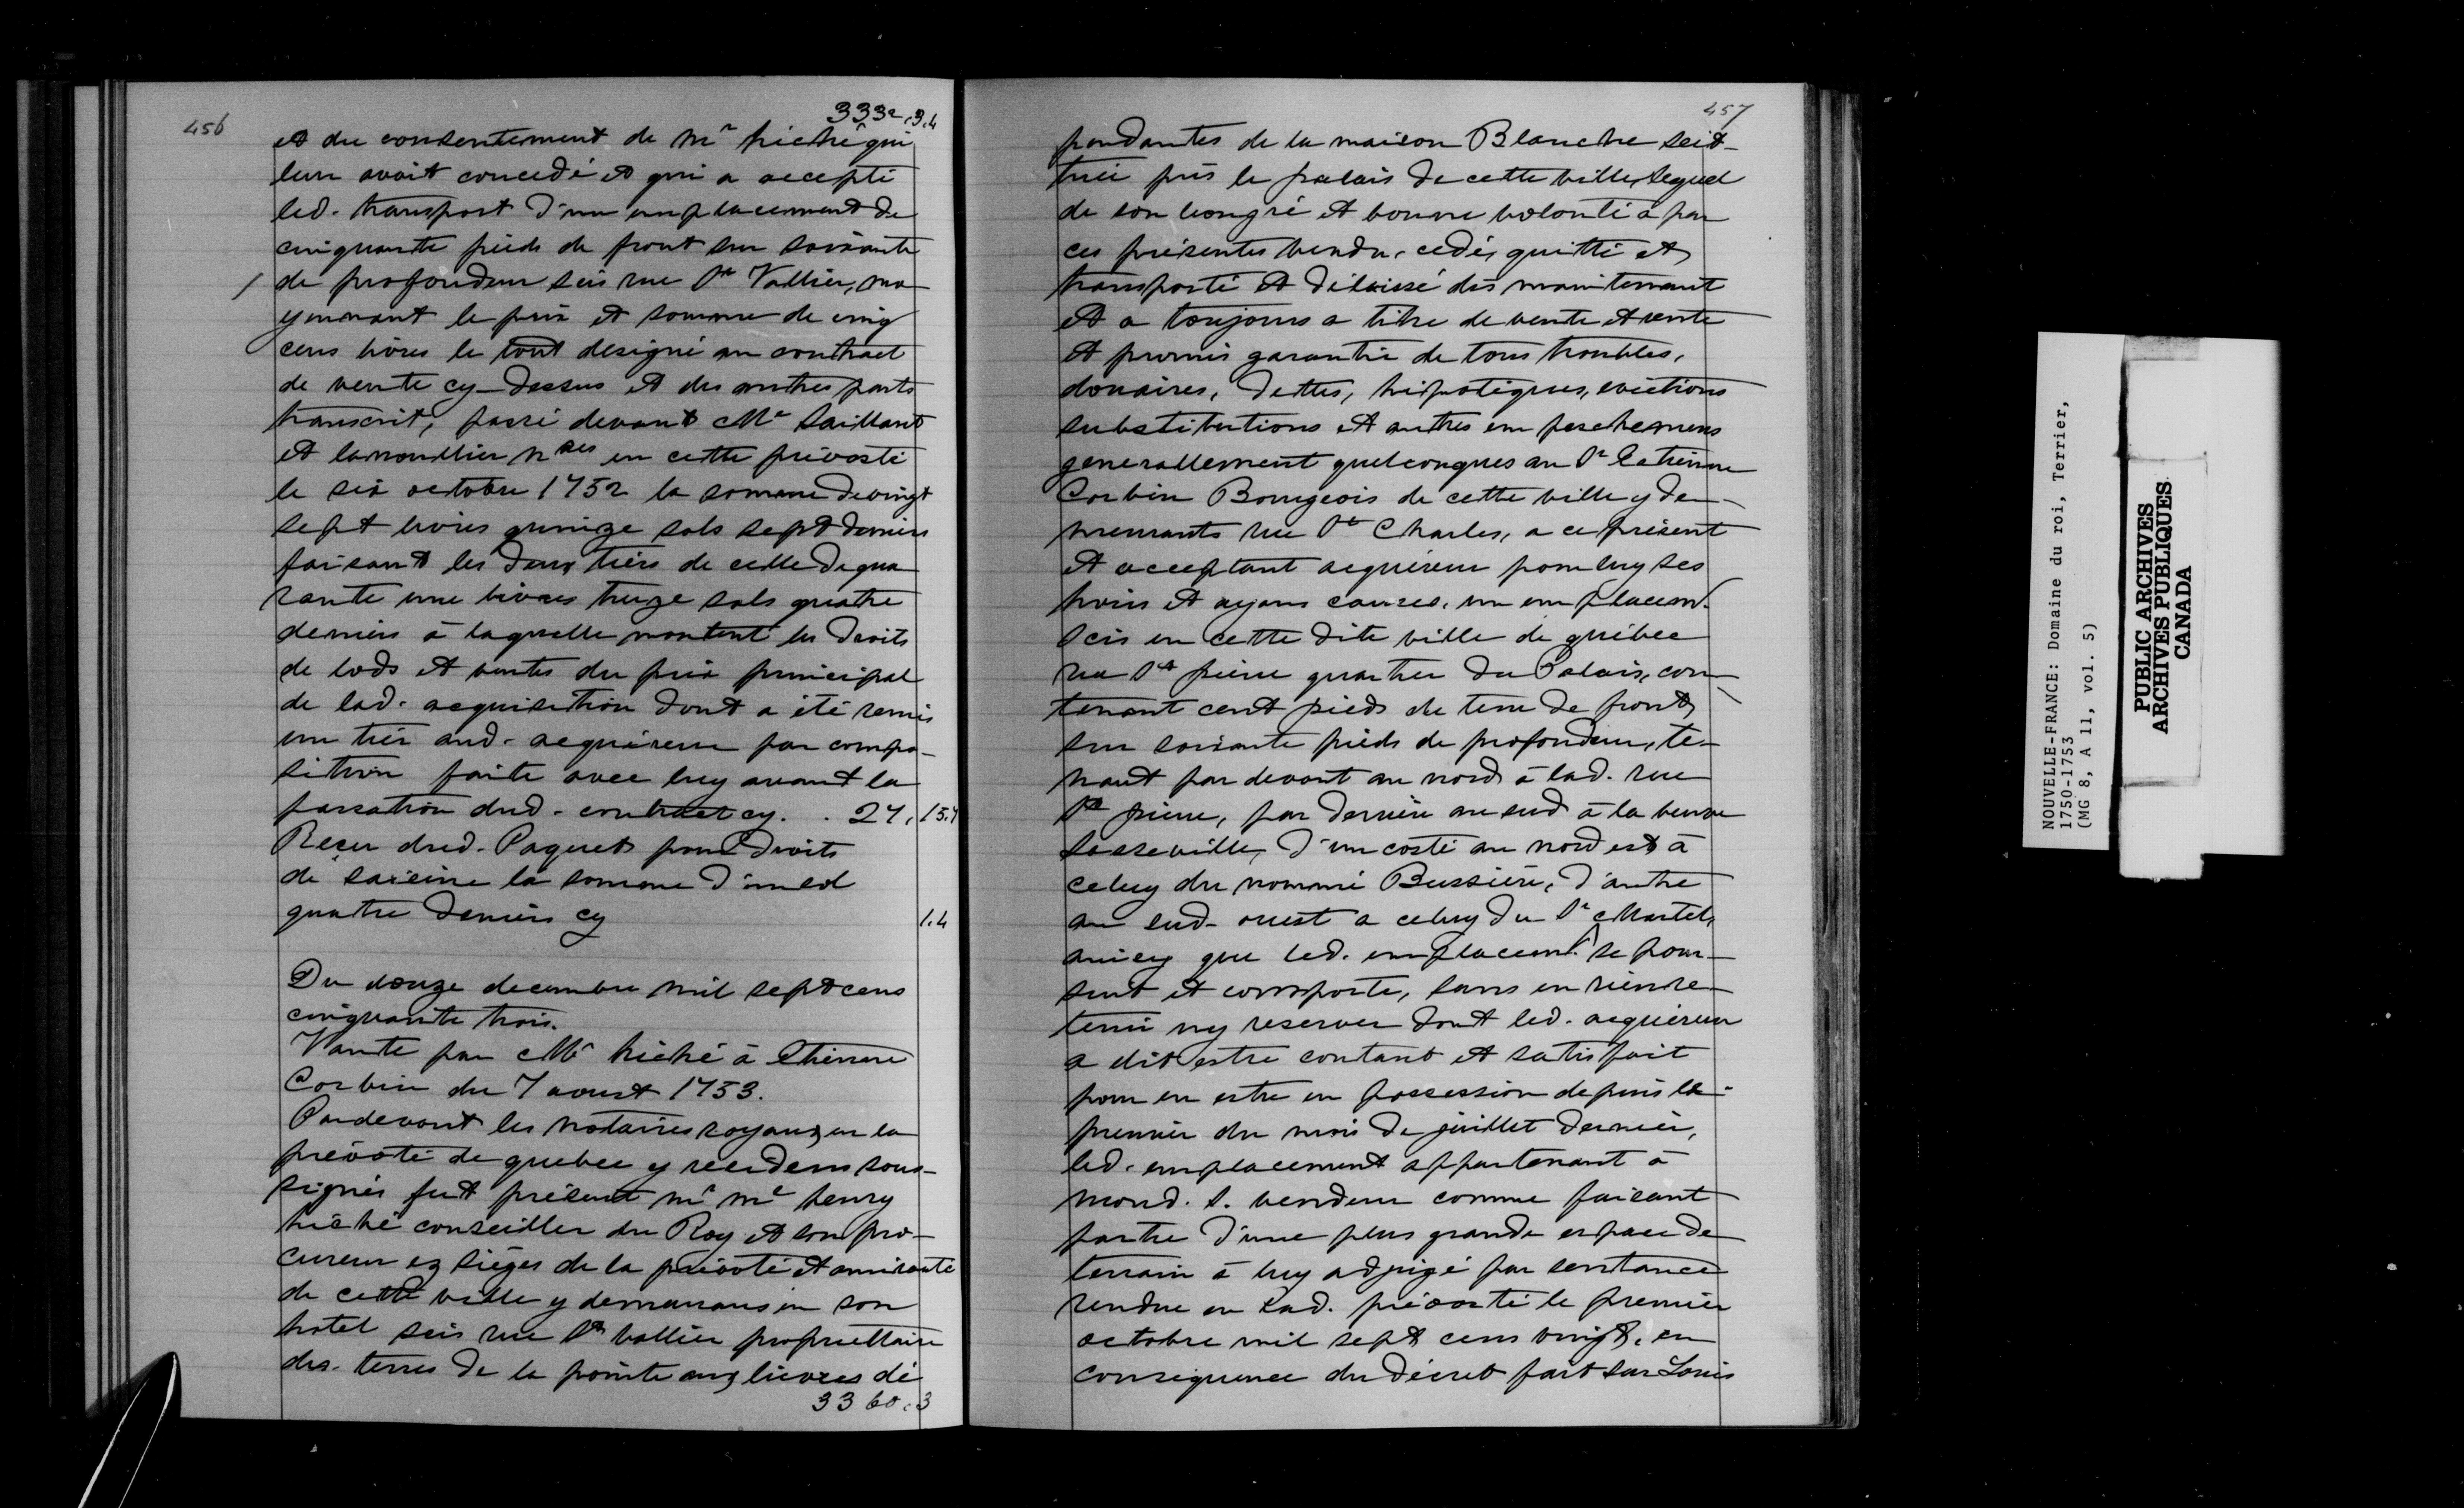 456
3332.3.4
et du consentement de Mr hiché qui
leur avoit concedé et qui a accepté
led. transport d'un emplacement de
cinquante pieds de front sur soixante
de profondeur scis rue St Vallier, mo-
yennant le prix et somme de cinq
cens livres le tout designé au contract
de vente cy-dessus et des autres parts
transcrit, passé devant Me Saillant
et lanoullier nres en cette prévosté
le six octobre 1752 la somme de vingt
sept livres quinze sols sept deniers
faisant les deux tiers de celle de qua
rante une livres treize sols quatre
deniers à laquelle montent les droits
de lods et ventes du prix principal
de lad. acquisition dont a été remis
un tier aud. acquéreur par compo-
sition faite avec luy avant la
passation dud. contract cy. . 27.15.7
Reçu dud. Paquet pour droits
de saisine la somme d'un sol
quatre deniers cy 1.4
Du douze decembre mil sept cens
cinquante trois.
Vante par Mr hiché à Etienne
Corbin du 7 aoust 1753.
Pardevant les notaires royaux en la
prévoté de quebec y residens sous-
signés fut présent Mr Me henry
hiché conseiller du Roy et son pro-
cureur ez sièges de la prévoté et amirauté
de cette ville y demeurans en son
hotel scis rue St vallier propriettaire
des terres de la pointe aux lievres dé
3360.3
457
pendantes de la maison Blanche scit-
tuée près le palais de cette ville, lequel
de son bongré et bonne volonté a par
ces présentes vendu, cedé, quitté et
transporté et délaissé dès maintenant
et a toujours a titre de vente et rente
et promis garantir de tous troubles,
douaires, dettes, hipotèques, evictions
substitutions et autres empeschemens
generallement quelconques au Sr Estienne
Corbin Bourgeois de cette ville y de-
meurants rue St Charles, a ce présent
et acceptant acquereur pour luy ses
hoirs et ayans causes, un emplacemt.
scis en cette dite ville de québec
rue St pierre quartier du Palais, con-
tenant cent pieds de terre de front
sur soixante pieds de profondeur, te-
nant par devant au nord à lad. rue
St pierre, par derrière au sud à la veuve
Lasseville, d'un costé au nord est à
celuy du nommé Bussière, d'autre
au sud-ouest a celuy du Sr Martel,
ainsy que led. emplacemt. se pour-
suit et comporte, sans en rien re-
tenir ny reserver dont led. acquereur
a dit estre contant et satisfait
pour en estre en possession depuis le
premier du mois de juillet dernier,
led. emplacement appartenant à
mond. S. vendeur comme faisant
partie d'une plus grande espace de
terrain à luy adjugé par sentance
rendue en lad. prévosté le premier
octobre mil sept cens vingt, en
consequence du décret fait sur Louis
NOUVELLE-FRANCE: Domaine du roi, Terrier,
1750-1753
(MG 8, A 11, vol. 5)
PUBLIC ARCHIVES
ARCHIVES PUBLIQUES
CANADA